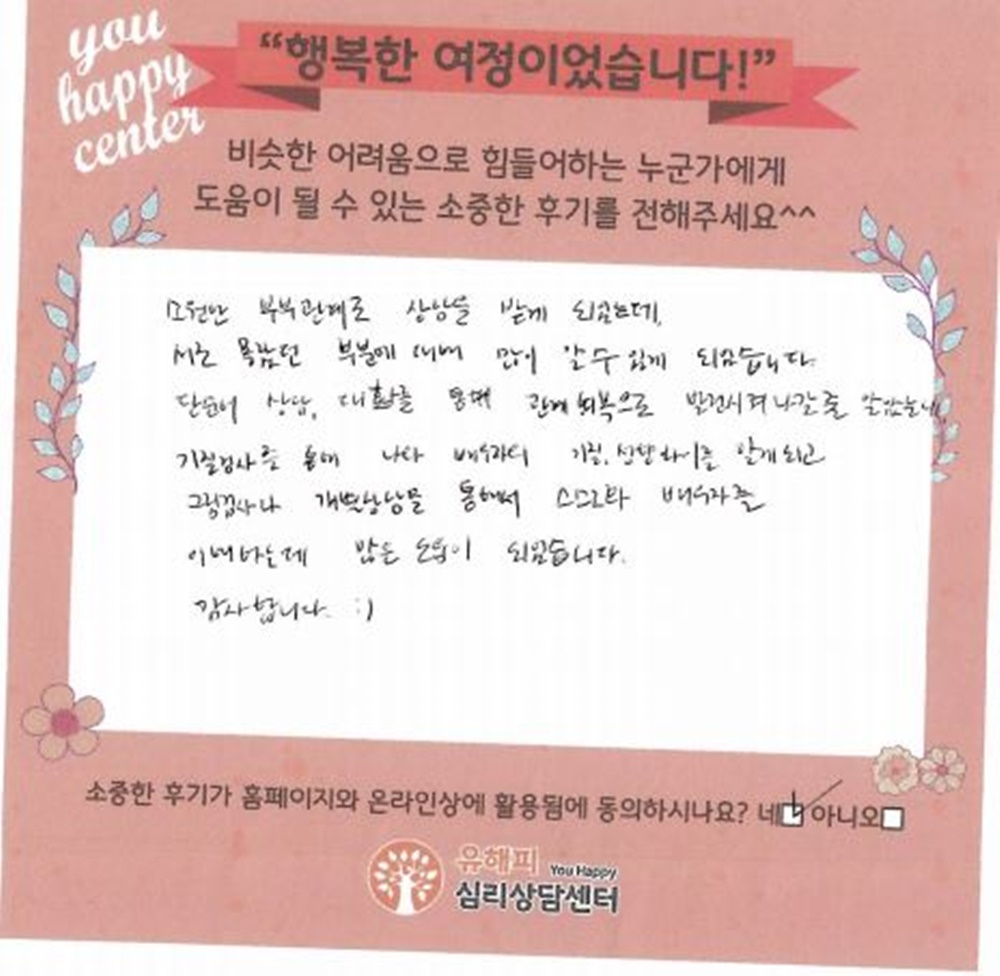 you
happy
center
“행복한 여정이었습니다!”
비슷한 어려움으로 힘들어하는 누군가에게
도움이 될 수 있는 소중한 후기를 전해주세요^^
소원한 부부관계로 상담을 받게 되었는데,
서로 몰랐던 부분에 대해 많이 알 수 있게 되었습니다.
단순히 상담, 대화를 통해 관계 회복으로 발전시켜 나갈 줄 알았는데,
기질검사를 통해 나와 배우자의 기질, 성향 차이를 알게 되고
그림검사나 개별상담을 통해서 스스로와 배우자를
이해하는데 많은 도움이 되었습니다.
감사합니다. :)
소중한 후기가 홈페이지와 온라인상에 활용됨에 동의하시나요? 네 아니오
유해피 You Happy
심리상담센터